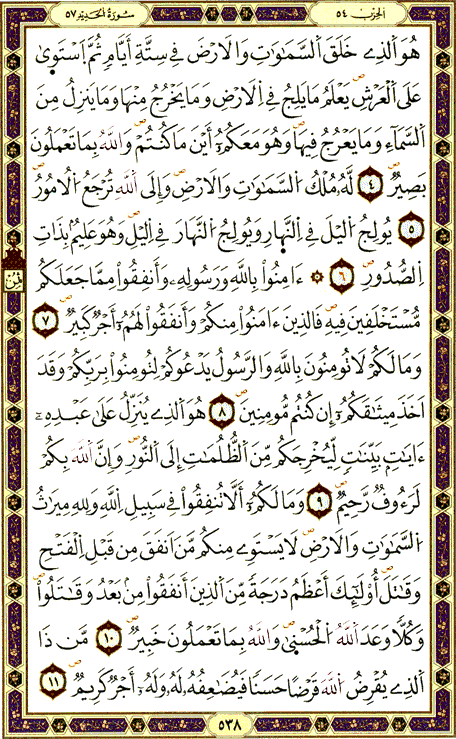 الحزب ٥٤
سُورَةُ الحَدِيد ٥٧
هُوَ اَ۬لذِے خَلَقَ اَ۬لسَّمَٰوَٰتِ وَالَارْضَ فِے سِتَّةِ أَيَّامٖ ثُمَّ اَ۪سْتَو۪ىٰ
عَلَى اَ۬لْعَرْشِۖ يَعْلَمُ مَا يَلِجُ فِے اِ۬لَارْضِ وَمَا يَخْرُجُ مِنْهَا وَمَا يَنزِلُ مِنَ
اَ۬لسَّمَآءِ وَمَا يَعْرُجُ فِيهَاۖ وَهُوَ مَعَكُمُۥٓ أَيْنَ مَا كُنتُمْۖ وَاللَّهُ بِمَا تَعْمَلُونَ
بَصِيرٞۖ ٤ لَّهُۥ مُلْكُ اُ۬لسَّمَٰوَٰتِ وَالَارْضِۖ وَإِلَى اَ۬للَّهِ تُرْجَعُ اُ۬لُامُورُۖ
٥ يُولِجُ اُ۬ليْلَ فِے اِ۬لنَّه۪ارِ وَيُولِجُ اُ۬لنَّهَارَ فِے اِ۬ليْلِۖ وَهُوَ عَلِيمُۢ بِذَاتِ
اِ۬لصُّدُورِۖ ٦ ۞ ءَامِنُواْ بِاللَّهِ وَرَسُولِهِۦ وَأَنفِقُواْ مِمَّا جَعَلَكُم
مُّسْتَخْلَفِينَ فِيهِۖ فَالذِينَ ءَامَنُواْ مِنكُمْ وَأَنفَقُواْ لَهُمُۥٓ أَجْرٞ كَبِيرٞۖ ٧
وَمَا لَكُمْ لَا تُومِنُونَ بِاللَّهِ وَالرَّسُولُ يَدْعُوكُمْ لِتُومِنُواْ بِرَبِّكُمْ وَقَدَ
اَخَذَ مِيثَٰقَكُمُۥٓ إِن كُنتُم مُّومِنِينَۖ ٨ هُوَ اَ۬لذِے يُنَزِّلُ عَلَىٰ عَبْدِهِۦٓ
ءَايَٰتِۢ بَيِّنَٰتٖ لِّيُخْرِجَكُم مِّنَ اَ۬لظُّلُمَٰتِ إِلَى اَ۬لنُّورِۖ وَإِنَّ اَ۬للَّهَ بِكُمْ
لَرَءُوفٞ رَّحِيمٞۖ ٩ وَمَا لَكُمُۥٓ أَلَّا تُنفِقُواْ فِے سَبِيلِ اِ۬للَّهِ وَلِلهِ مِيرَٰثُ
اُ۬لسَّمَٰوَٰتِ وَالَارْضِۖ لَا يَسْتَوِے مِنكُم مَّنَ اَنفَقَ مِن قَبْلِ اِ۬لْفَتْحِ
وَقَٰتَلَۖ أُوْلَٰٓئِكَ أَعْظَمُ دَرَجَةٗ مِّنَ اَ۬لذِينَ أَنفَقُواْ مِنۢ بَعْدُ وَقَٰتَلُواْۖ
وَكُلّاٗ وَعَدَ اَ۬للَّهُ اُ۬لْحُسْن۪ىٰۖ وَاللَّهُ بِمَا تَعْمَلُونَ خَبِيرٞۖ ١٠ مَّن ذَا
اَ۬لذِے يُقْرِضُ اُ۬للَّهَ قَرْضاً حَسَناٗ فَيُضَٰعِفُهُۥ لَهُۥ وَلَهُۥٓ أَجْرٞ كَرِيمٞۖ ١١
ثمن
٥٣٨